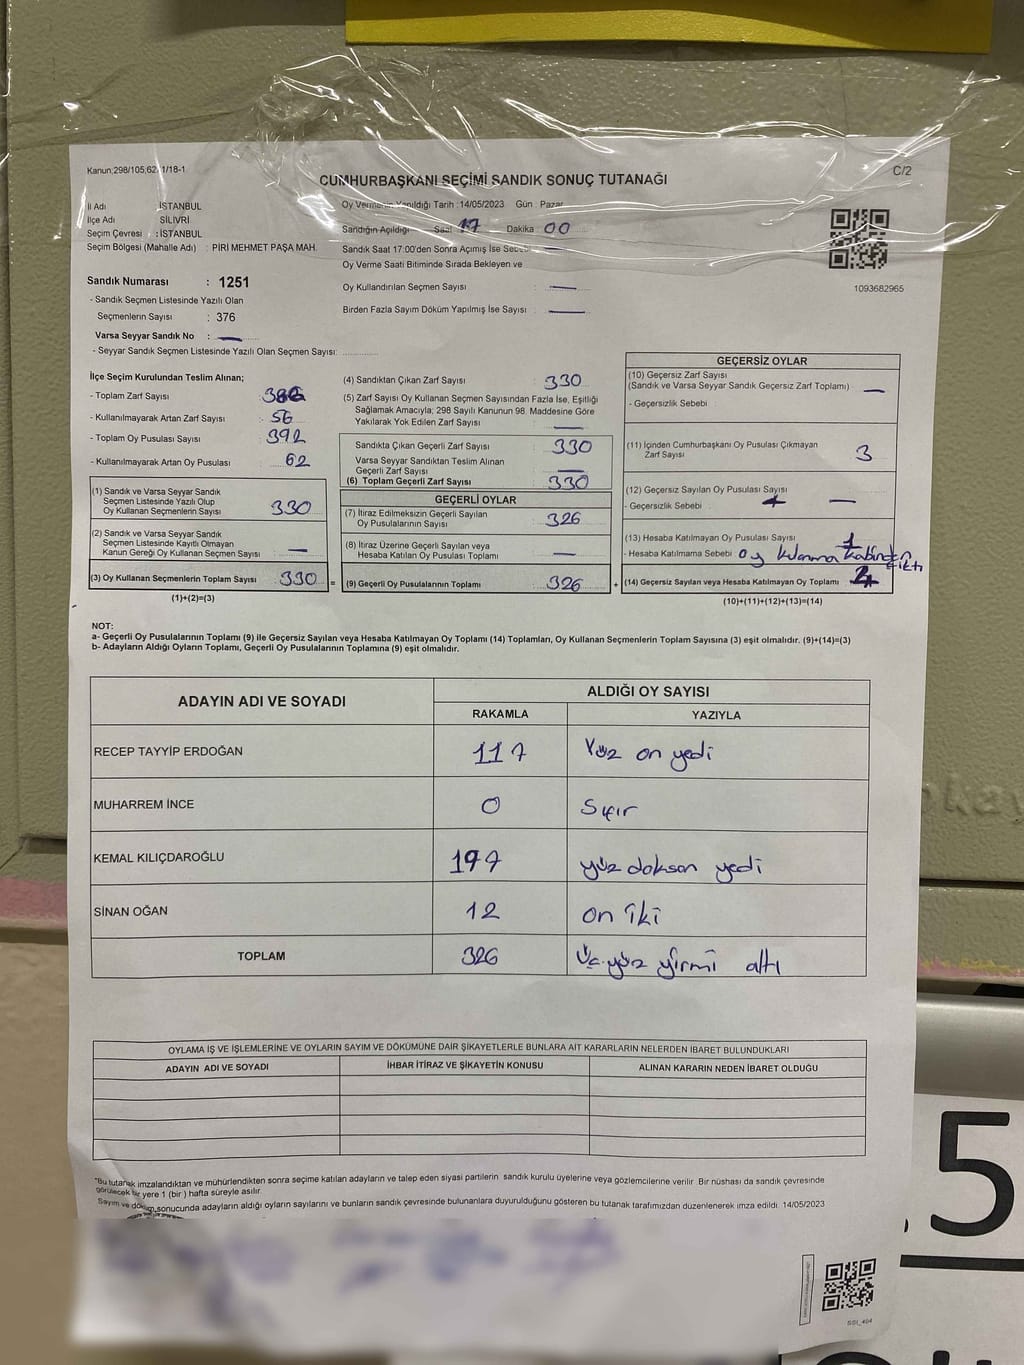 Kanun;298/105,62/1/18-1
C/2
CUMHURBAŞKANI SEÇİMİ SANDIK SONUÇ TUTANAĞI
İl Adı : İSTANBUL
İlçe Adı : SİLİVRİ
Seçim Çevresi : İSTANBUL
Seçim Bölgesi (Mahalle Adı) : PİRİ MEHMET PAŞA MAH.
Oy Vermenin Yapıldığı Tarih :14/05/2023 Gün : Pazar
Sandığın Açıldığı Saat 17 Dakika 00
Sandık Saat 17:00'den Sonra Açımış İse Sebebi
Oy Verme Saati Bitiminde Sırada Bekleyen ve
Oy Kullandırılan Seçmen Sayısı : —
Birden Fazla Sayım Döküm Yapılmış İse Sayısı : —
1093682965
Sandık Numarası : 1251
- Sandık Seçmen Listesinde Yazılı Olan
Seçmenlerin Sayısı : 376
Varsa Seyyar Sandık No : —
- Seyyar Sandık Seçmen Listesinde Yazılı Olan Seçmen Sayısı:
İlçe Seçim Kurulundan Teslim Alınan;
- Toplam Zarf Sayısı :
- Kullanılmayarak Artan Zarf Sayısı : 56
- Toplam Oy Pusulası Sayısı : 392
- Kullanılmayarak Artan Oy Pusulası : 62
(1) Sandık ve Varsa Seyyar Sandık
Seçmen Listesinde Yazılı Olup
Oy Kullanan Seçmenlerin Sayısı : 330
(2) Sandık ve Varsa Seyyar Sandık
Seçmen Listesinde Kayıtlı Olmayan
Kanun Gereği Oy Kullanan Seçmen Sayısı : —
(3) Oy Kullanan Seçmenlerin Toplam Sayısı : 330
(1)+(2)=(3)
(4) Sandıktan Çıkan Zarf Sayısı : 330
(5) Zarf Sayısı Oy Kullanan Seçmen Sayısından Fazla İse, Eşitliği
Sağlamak Amacıyla; 298 Sayılı Kanunun 98. Maddesine Göre
Yakılarak Yok Edilen Zarf Sayısı : —
Sandıkta Çıkan Geçerli Zarf Sayısı : 330
Varsa Seyyar Sandıktan Teslim Alınan
Geçerli Zarf Sayısı : —
(6) Toplam Geçerli Zarf Sayısı : 330
GEÇERLİ OYLAR
(7) İtiraz Edilmeksizin Geçerli Sayılan
Oy Pusulalarının Sayısı : 326
(8) İtiraz Üzerine Geçerli Sayılan veya
Hesaba Katılan Oy Pusulası Toplamı : —
= (9) Geçerli Oy Pusulalarının Toplamı : 326
GEÇERSİZ OYLAR
(10) Geçersiz Zarf Sayısı
(Sandık ve Varsa Seyyar Sandık Geçersiz Zarf Toplamı) : —
- Geçersizlik Sebebi
(11) İçinden Cumhurbaşkanı Oy Pusulası Çıkmayan
Zarf Sayısı : 3
(12) Geçersiz Sayılan Oy Pusulası Sayısı
- Geçersizlik Sebebi : —
(13) Hesaba Katılmayan Oy Pusulası Sayısı : 1
- Hesaba Katılmama Sebebi oy kullanma kabinden çıktı
+ (14) Geçersiz Sayılan veya Hesaba Katılmayan Oy Toplamı :
(10)+(11)+(12)+(13)=(14)
NOT:
a- Geçerli Oy Pusulalarının Toplamı (9) ile Geçersiz Sayılan veya Hesaba Katılmayan Oy Toplamı (14) Toplamları, Oy Kullanan Seçmenlerin Toplam Sayısına (3) eşit olmalıdır. (9)+(14)=(3)
b- Adayların Aldığı Oyların Toplamı, Geçerli Oy Pusulalarının Toplamına (9) eşit olmalıdır.
ADAYIN ADI VE SOYADI
ALDIĞI OY SAYISI
RAKAMLA YAZIYLA
RECEP TAYYİP ERDOĞAN 117 Yüz on yedi
MUHARREM İNCE 0 Sıfır
KEMAL KILIÇDAROĞLU 197 yüz doksan yedi
SİNAN OĞAN 12 on iki
TOPLAM 326 Üç yüz yirmi altı
OYLAMA İŞ VE İŞLEMLERİNE VE OYLARIN SAYIM VE DÖKÜMÜNE DAİR ŞİKAYETLERLE BUNLARA AİT KARARLARIN NELERDEN İBARET BULUNDUKLARI
ADAYIN ADI VE SOYADI İHBAR İTİRAZ VE ŞİKAYETİN KONUSU ALINAN KARARIN NEDEN İBARET OLDUĞU
"Bu tutanak imzalandıktan ve mühürlendikten sonra seçime katılan adayların ve talep eden siyasi partilerin sandık kurulu üyelerine veya gözlemcilerine verilir. Bir nüshası da sandık çevresinde
görülecek bir yere 1 (bir ) hafta süreyle asılır.
Sayım ve döküm sonucunda adayların aldığı oyların sayılarını ve bunların sandık çevresinde bulunanlara duyurulduğunu gösteren bu tutanak tarafımızdan düzenlenerek imza edildi. 14/05/2023
5